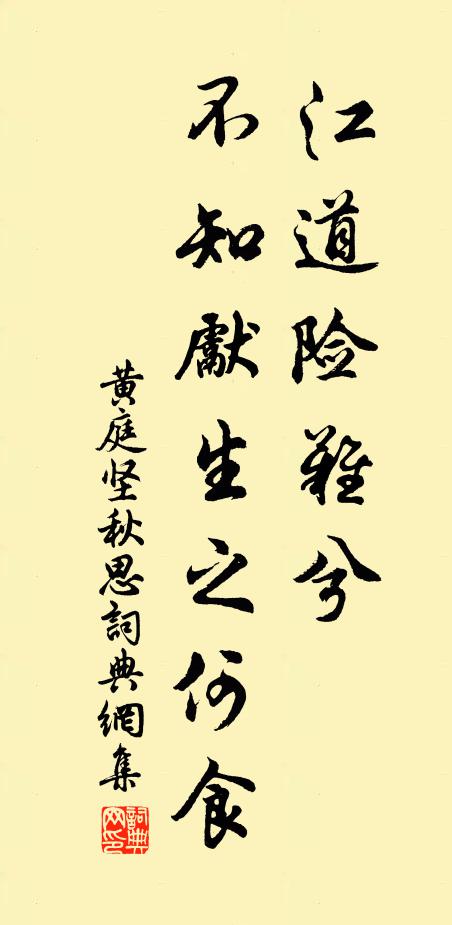 江道险难兮
不知獻生之何食
黄庭坚秋思詞典網集
詞典网印